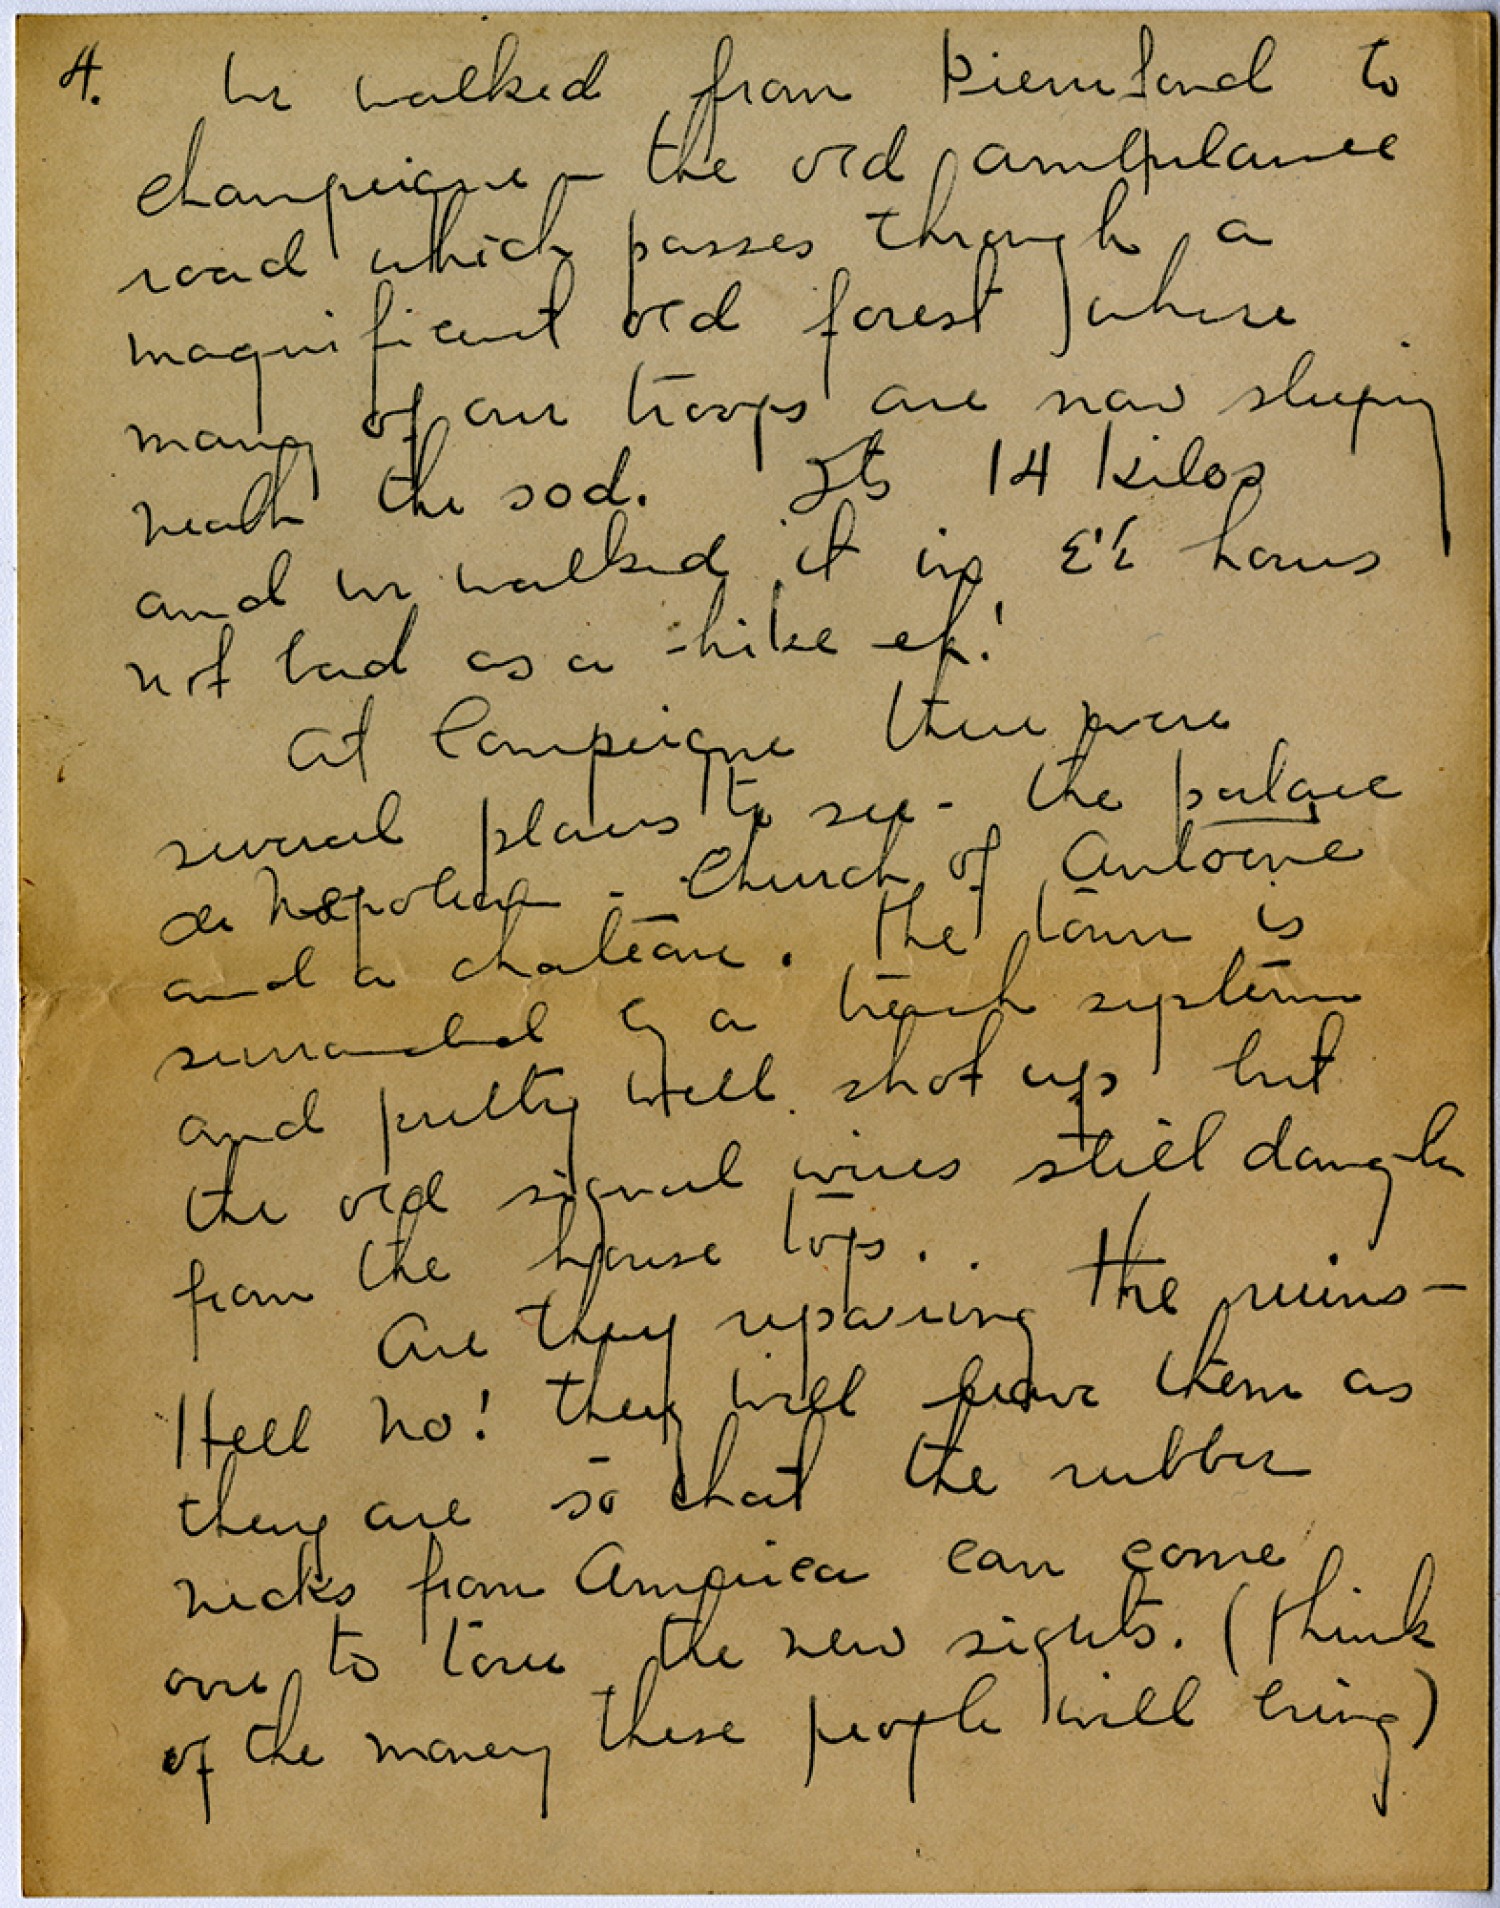 4. We walked from Pierrefond to
Champeigne - the old ambulance
road which passes through a
magnificent old forest where
many of our troops are now sleeping
neath the sod. Its 14 kilos
and we walked it in hours
not bad as a hike eh!
At Compeigne there were
several places to see - the palace
de Napoleon - Church of Antoine
and a chateau. The town is
surrounded by a trench system
and pretty well shot up but
the old signal wires still dangle
from the house tops.
Are they repairing the ruins -
Hell no! they will leave them as
they are so that the rubber
necks from America can come
over to tour the new sights. (Think
of the money these people will bring)